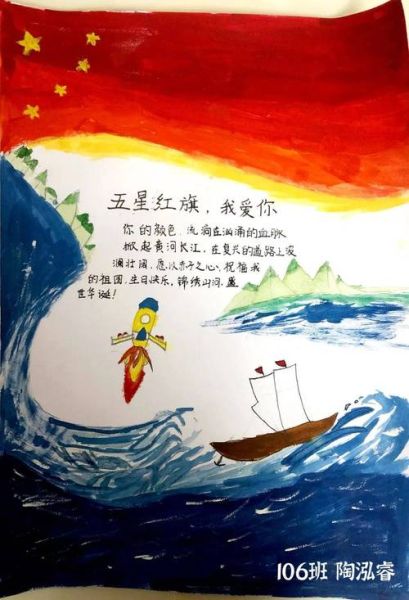 五星红旗，我爱你
你的颜色，流淌在汹涌的血脉
掀起黄河长江，在复兴的道路上波
澜壮阔，愿以赤子之心，祝福我
的祖国，生日快乐，锦绣山河，盛
世华诞！
106班 陶泓睿